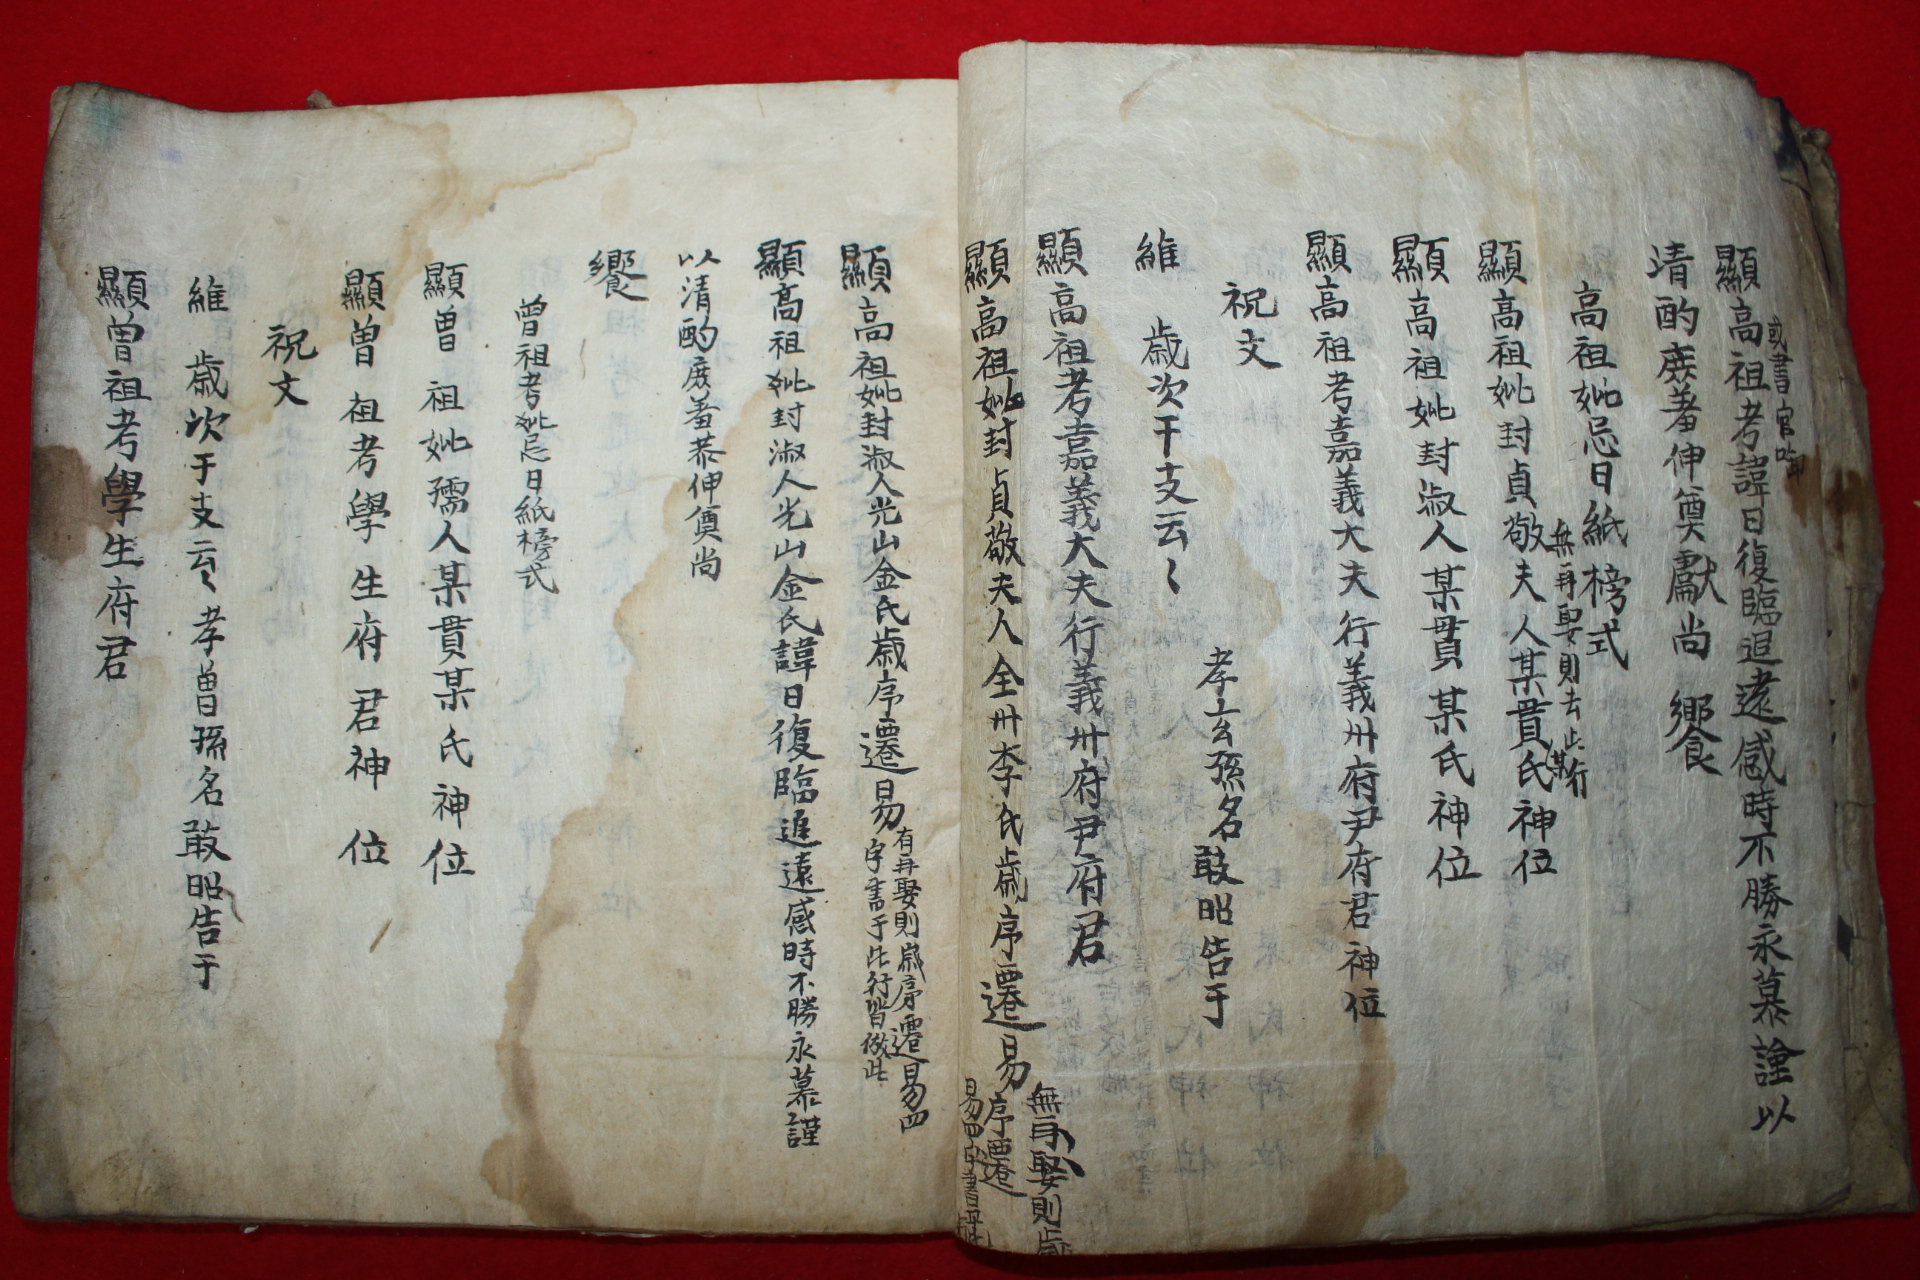 顯高祖考諱日復臨追遠感時不勝永慕謹以
或書官啣
清酌庶羞伸奠獻尚 饗
高祖妣忌日紙榜式
無再娶則去此某行
顯高祖妣封貞敬夫人某貫某氏神位
顯高祖妣封淑人某貫某氏神位
顯高祖考嘉義大夫行義州府尹府君神位
祝文
孝玄孫名敢昭告于
維 歲次干支云〻
顯高祖考嘉義大夫行義州府尹府君
顯高祖妣封貞敬夫人全州李氏歲序遷易
無再娶則歲
序遷
易四字書
顯高祖妣封淑人光山金氏歲序遷易
有再娶則歲序遷易四
字書于此行皆倣此
顯高祖妣封淑人光山金氏諱日復臨追遠感時不勝永慕謹
以清酌庶羞恭伸奠尚
饗
曾祖考妣忌日紙榜式
顯曾祖妣孺人某貫某氏神位
顯曾祖考學生府君神位
祝文
維 歲次干支云〻孝曾孫名敢昭告于
顯曾祖考學生府君